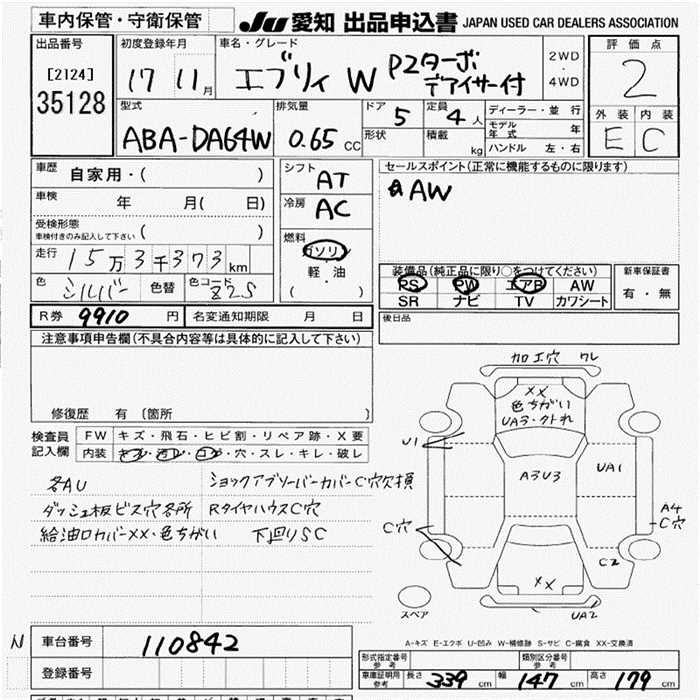 車内保管・守衛保管
JU 愛知 出品申込書 JAPAN USED CAR DEALERS ASSOCIATION
出品番号
[2124]
35128
初度登録年月
17 11月
車名・グレード
エブリィ W PZターボ
デアイサー付
2WD
・
4WD
評価点
2
外装 内装
E C
型式
ABA-DA64W
排気量
0.65 CC
ドア 5
形状
定員 4人
積載 kg
ディーラー・並行
モデル年式 年
ハンドル 左・右
車歴 自家用・( )
車検 年 月( 日)
受検形態
車検付きのみ記入して下さい ( )
走行 15万3千373km
色 シルバー 色替 色コード Z2S
シフト AT
冷房 AC
燃料
ガソリン
軽・油
( )
セールスポイント(正常に機能するものに限ります)
AW
装備品(純正品に限り○をつけてください)
PS PW エアB AW
SR ナビ TV カワシート
新車保証書
有・無
R券 9910 円 名変通知期限 月 日
後日品
注意事項申告欄(不具合内容等は具体的に記入して下さい)
修復歴 有 〔箇所 〕
検査員
記入欄
FW キズ・飛石・ヒビ割・リペア跡・X要
内装 キズ・汚レ・コゲ・穴・スレ・キレ・破レ
各AU ショックアブソーバーカバーC穴欠損
ダッシュ板ビス穴各所 RタイヤハウスC穴
給油口カバーXX・色ちがい 下回りSC
加工穴 ワレ
XX
色ちがい
UA3・クトれ
U1
A3U3
UA1
A4
C穴
C穴
C2
XX
UA2
スペア
A-キズ E-エクボ U-凹み W-補修跡 S-サビ C-腐食 XX-交換済
N
車台番号 110842
登録番号
形式指定番号
参考
類別区分番号
参考
車庫証明用
参考
長さ 339 cm 幅 147 cm 高さ 179 cm